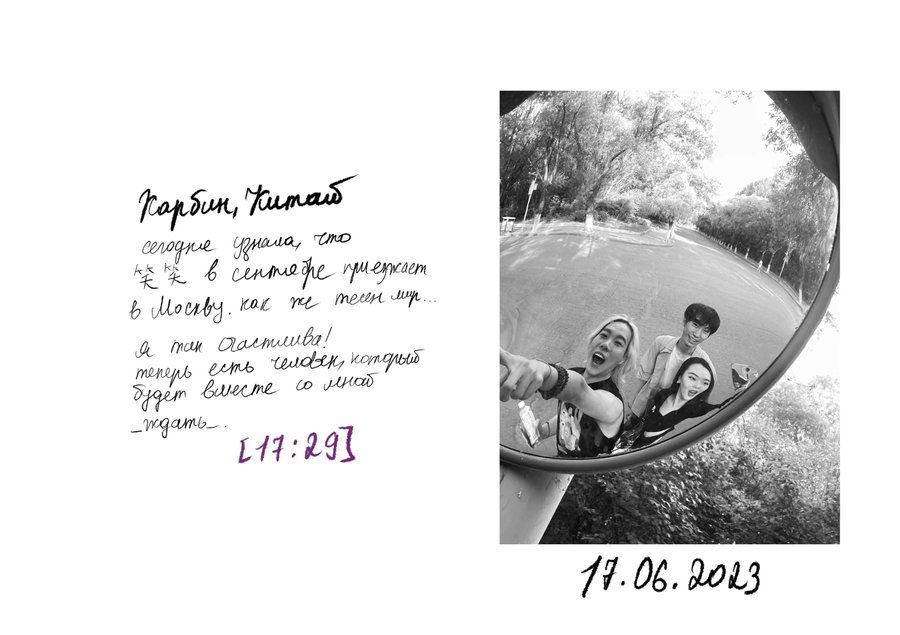 Харбин, Китай
сегодня узнала, что
笑笑 в сентябре приезжает
в Москву. как же тесен мир...
я так счастлива!
теперь есть человек, который
будет вместе со мной
_ждать_.
[17:29]
17.06.2023